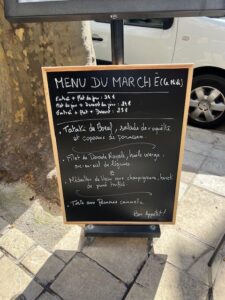 MENU DU MARCHÉ
Entrée + Plat du jour : 24 €
Plat du jour + Dessert du jour : 24 €
Entrée + Plat + Dessert : 29 €
- Tataki de Boeuf, salade de roquette
et copeaux de parmesan
- Filet de Daurade Royale, huile vierge
légumes
- Médaillon de Veau aux champignons
de purée truffée
- Tarte aux Pommes cannelle
Bon Appétit !